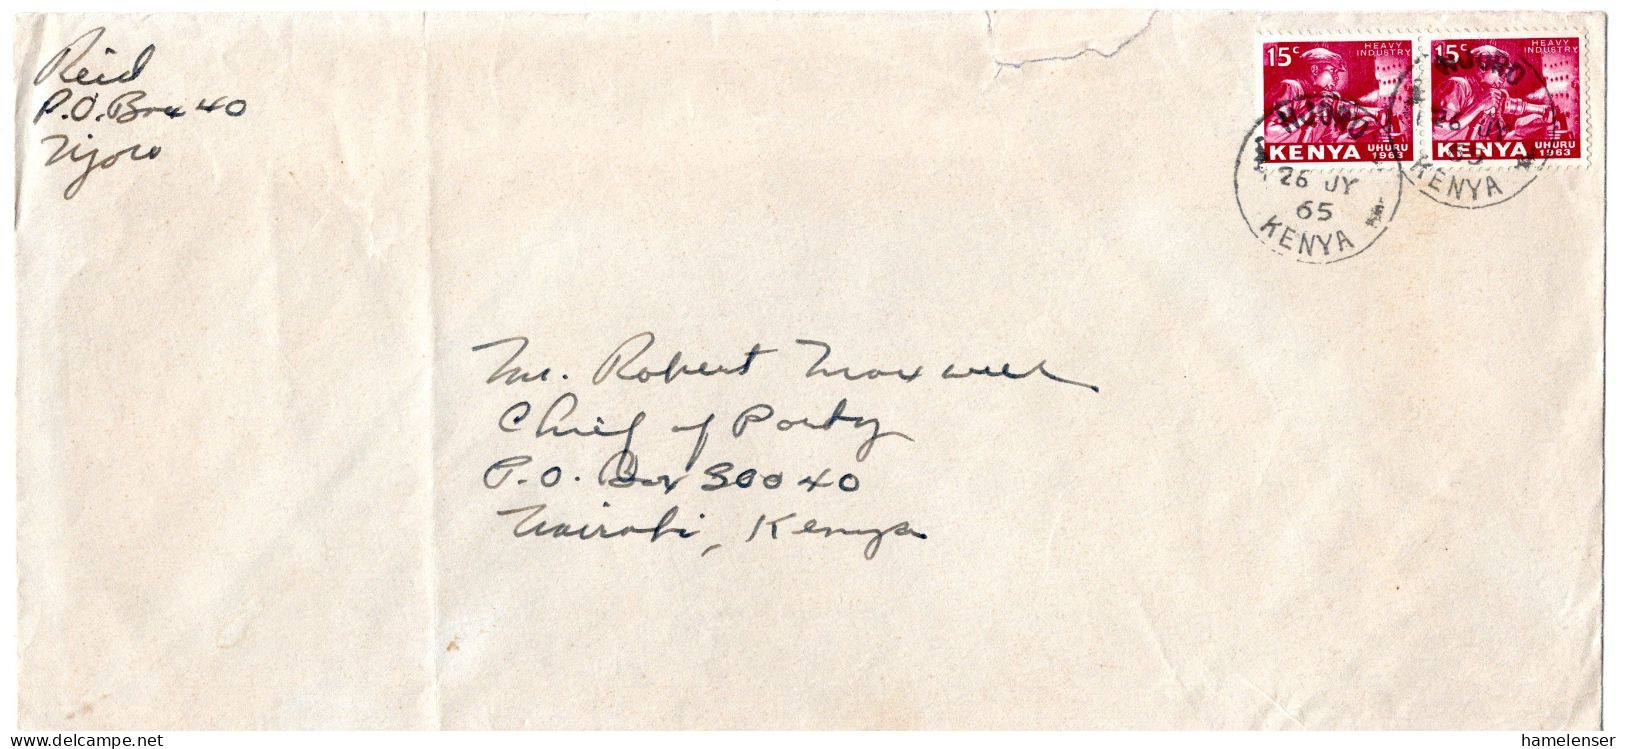 Reid
P.O. Box 40
Njoro
15c HEAVY INDUSTRY
KENYA UHURU 1963
15c HEAVY INDUSTRY
KENYA UHURU 1963
NJORO
26 JY
65
KENYA
NJORO
26 JY
65
KENYA
Mr. Robert Maxwell
Chief of Party
P.O. Box 30040
Nairobi, Kenya
www.delcampe.net
hamelenser